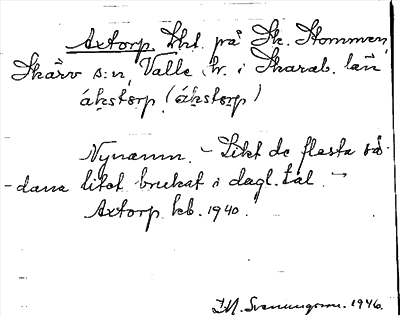 Axtorp, lht. på Sk. Stommen,
Skärv s:n, Valle hr. i Skarab. län
ákstorp (ákstorp)
Nynamn. - Likt de flesta så-
dana litet brukat i dagl. tal. -
Axtorp kb. 1940.
Svenungsson. 1946.